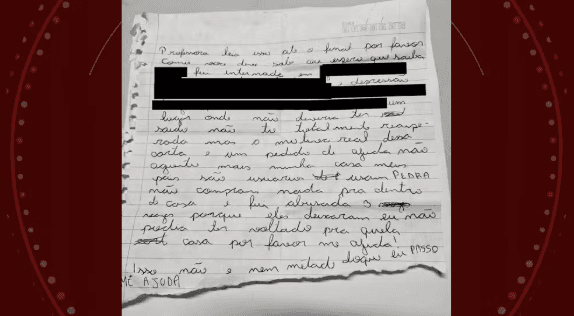 Professora leia isso até o final por favor
Como você deve saber ou espero que saiba
fui internada em
, depressão
um
lugar onde não deveria ter
saido não tô totalmente recupe-
rada mas o motivo real dessa
carta e um pedido de ajuda não
aguento mais minha casa meus
pais são usuarios usam PEDRA
não compram nada pra dentro
de casa e fui abusada 3
vezes porque eles deixaram eu não
podia ter voltado pra quela
casa por favor me ajuda!
Isso não e nem metad doque eu PASSO
ME AJUDA